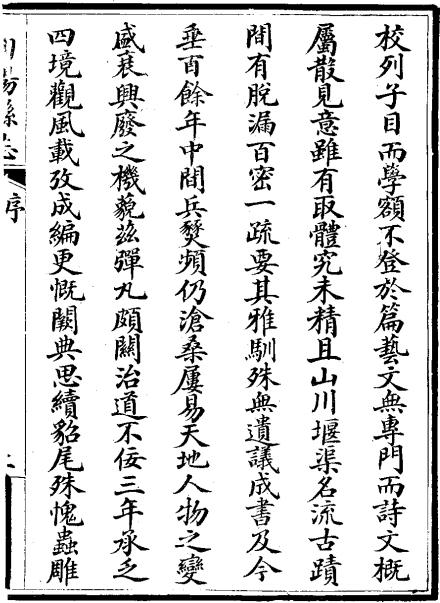 校列子目而學額不登於篇藝文無專門而詩文概
屬散見意雖有取體究未精且山川堰渠名流古蹟
間有脫漏百密一疏要其雅馴殊無遺議成書及今
垂百餘年中間兵燹頻仍滄桑屢易天地人物之變
盛衰興廢之機藐茲彈丸頗關治道不佞三年承乏
四境觀風載攷成編更慨闕典思續貂尾殊愧蟲雕
陽縣志
序